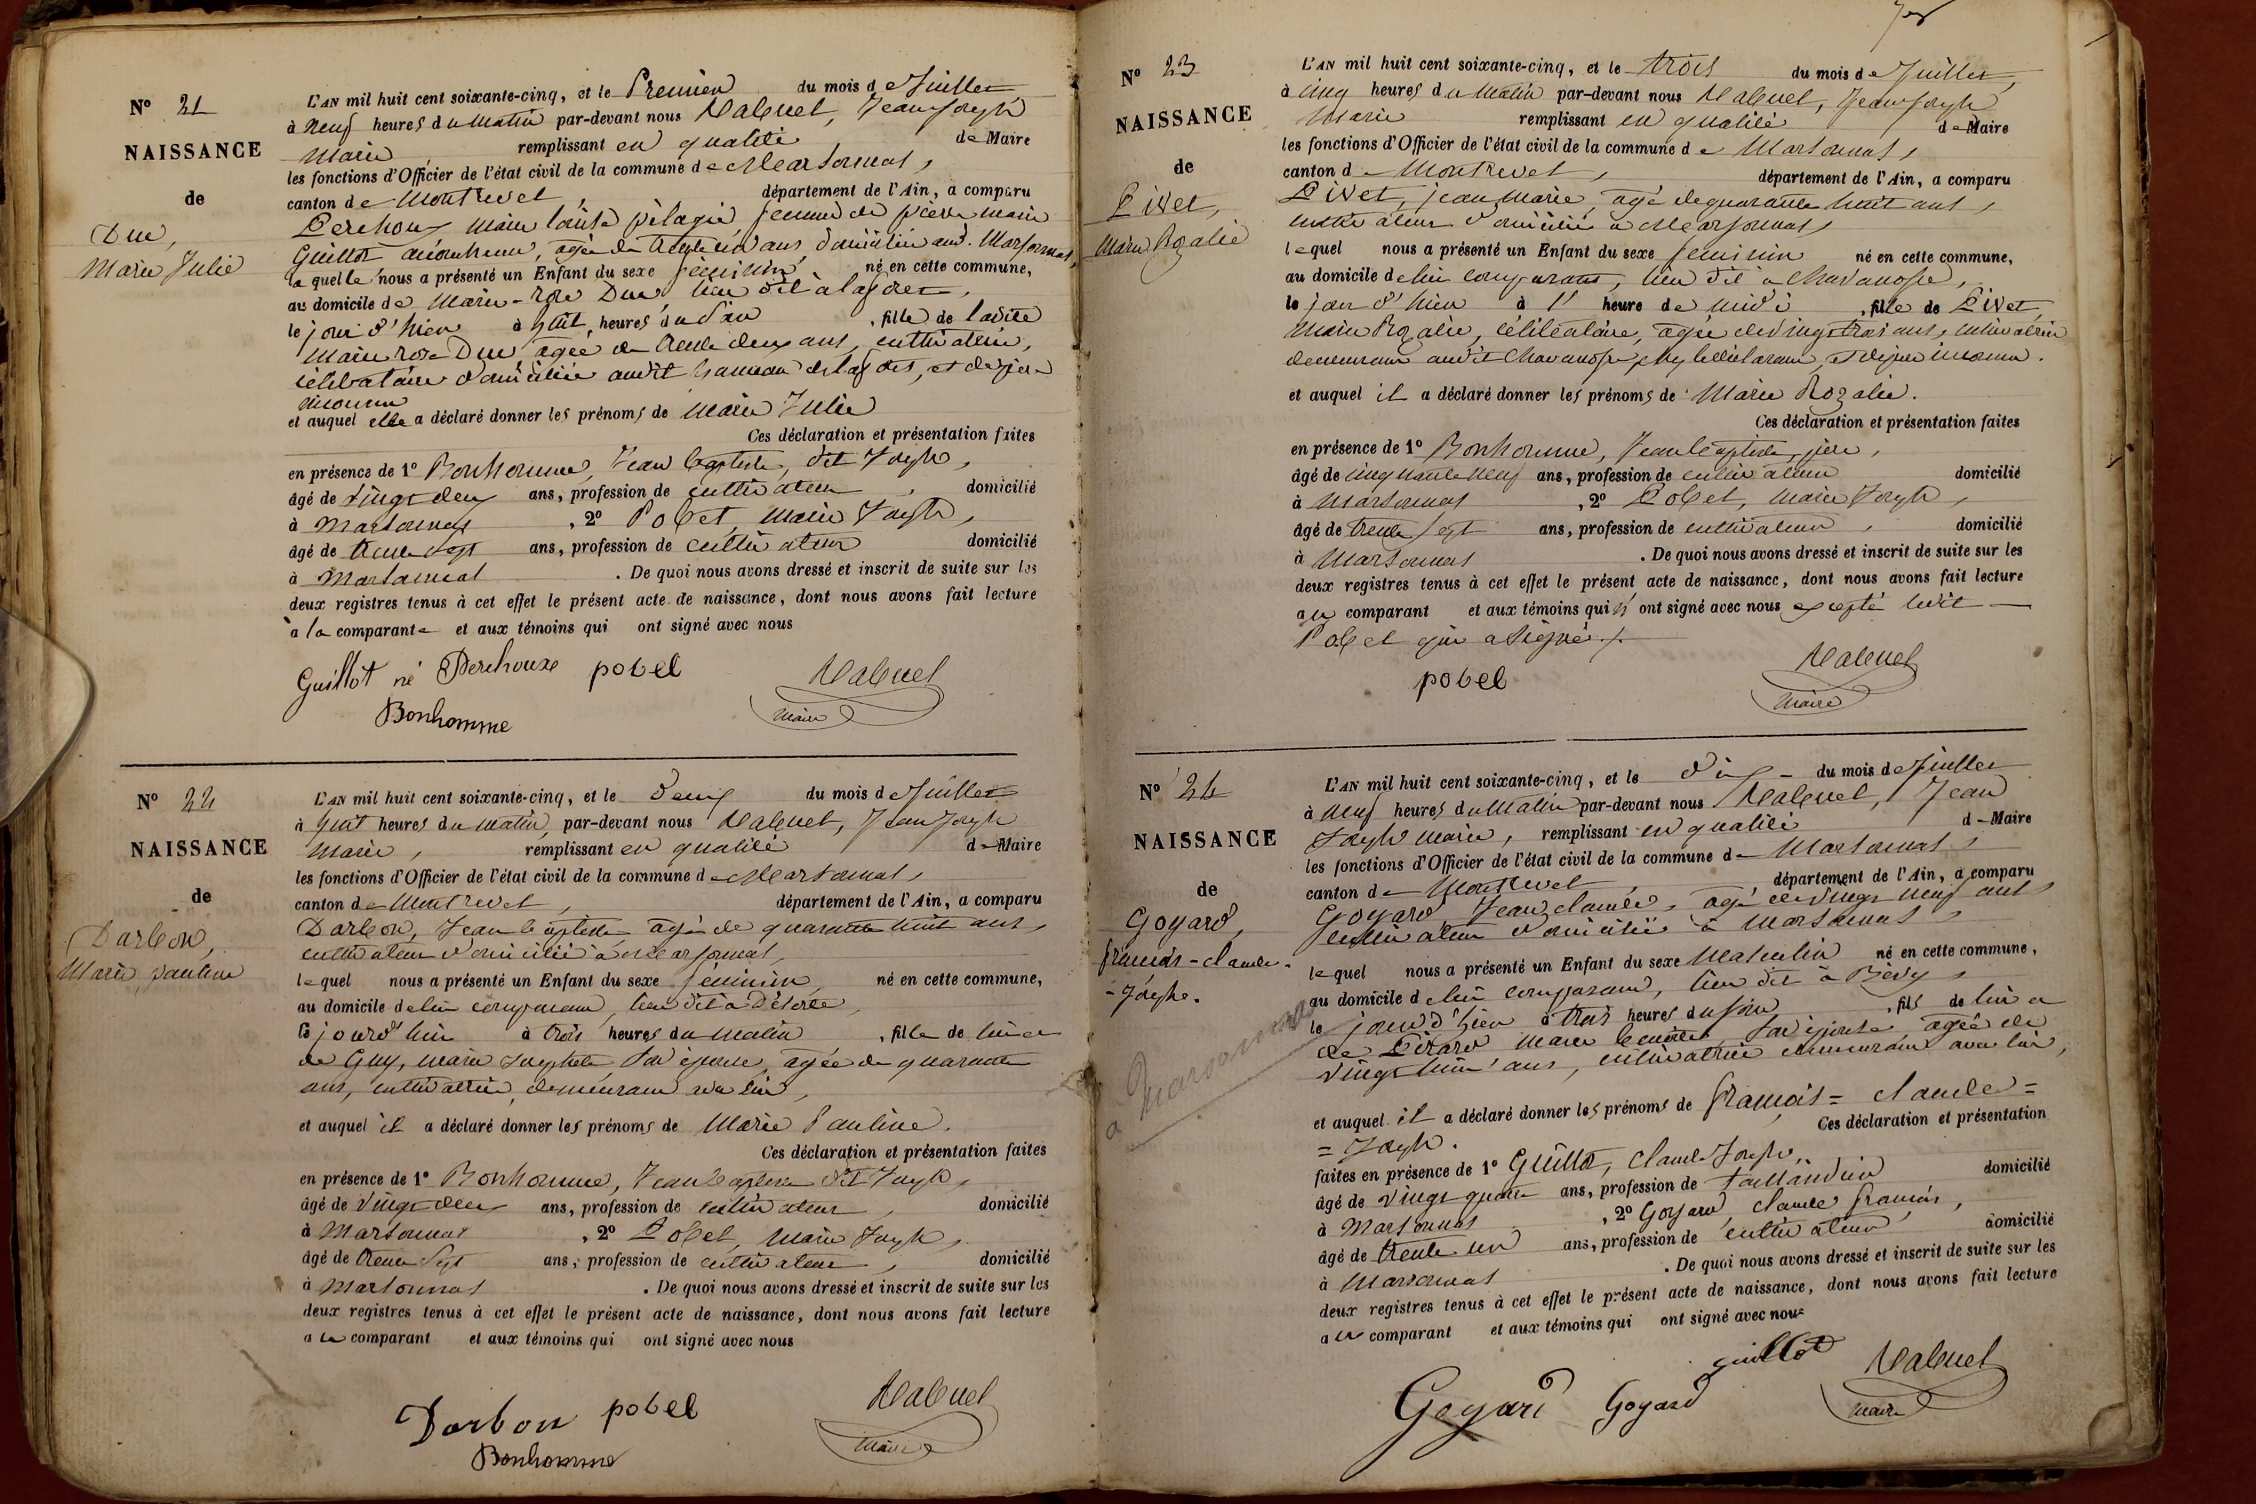 Nº 21
NAISSANCE
de
Duc,
Marie Julie
L'AN mil huit cent soixante-cinq, et le Premier du mois de Juillet
à neuf heures du matin par-devant nous Jean Joseph
Marie remplissant en qualité de Maire
les fonctions d'Officier de l'état civil de la commune de Marsonnas,
canton de Montrevel, département de l'Ain, a comparu
Perehoux Marie Louise pélagie femme de pierre Marie
Guillot, agée de trente ans, domiciliée aud. Marsonnas,
laquelle nous a présenté un Enfant du sexe féminin, né en cette commune,
au domicile de Marie-rose Duc lieu dit à
le jour d'hier à huit heures du soir, fille de ladite
Marie rose Duc agée de trente deux ans, cultivatrice,
célibataire domiciliée audit hameau et de père
inconnu
et auquel elle a déclaré donner les prénoms de Marie Julie
Ces déclaration et présentation faites
en présence de 1º Bonhomme, Jean baptiste, dit Joseph,
âgé de vingt deux ans, profession de cultivateur, domicilié
à Marsonnas, 2º Pobel, Marie Joseph,
âgé de trente sept ans, profession de cultivateur domicilié
à Marsonnas. De quoi nous avons dressé et inscrit de suite sur les
deux registres tenus à cet effet le présent acte de naissance, dont nous avons fait lecture
à la comparante et aux témoins qui ont signé avec nous
Guillot né Perehoux pobel
Bonhomme Maire
Nº 22
NAISSANCE
de
Darbon,
Marie pauline
L'AN mil huit cent soixante-cinq, et le deux du mois de Juillet
à huit heures du matin, par-devant nous Jean Joseph
Marie, remplissant en qualité de Maire
les fonctions d'Officier de l'état civil de la commune de Marsonnas,
canton de Montrevel, département de l'Ain, a comparu
Darbon, Jean baptiste agé de quarante huit ans,
cultivateur domicilié à Marsonnas,
lequel nous a présenté un Enfant du sexe féminin, né en cette commune,
au domicile de lui comparant, lieu dit à
le jourd'hui à trois heures du matin, fille de lui et
de Guy, Marie Josephte son épouse, agée de quarante
ans, cultivatrice, demeurant avec lui,
et auquel il a déclaré donner les prénoms de Marie Pauline.
Ces déclaration et présentation faites
en présence de 1º Bonhomme, Jean baptiste dit Joseph,
âgé de vingt deux ans, profession de cultivateur, domicilié
à Marsonnas, 2º Pobel, Marie Joseph,
âgé de trente sept ans, profession de cultivateur, domicilié
à Marsonnas. De quoi nous avons dressé et inscrit de suite sur les
deux registres tenus à cet effet le présent acte de naissance, dont nous avons fait lecture
au comparant et aux témoins qui ont signé avec nous
Darbon pobel
Bonhomme Maire
Nº 23
NAISSANCE
de
Pivet,
Marie Rozalie
L'AN mil huit cent soixante-cinq, et le trois du mois de Juillet,
à cinq heures du matin par-devant nous Jean Joseph
Marie remplissant en qualité de Maire
les fonctions d'Officier de l'état civil de la commune de Marsonnas,
canton de Montrevel, département de l'Ain, a comparu
Pivet, jean marie, agé de quarante huit ans,
cultivateur domicilié à Marsonnas,
lequel nous a présenté un Enfant du sexe féminin né en cette commune,
au domicile de lui comparant, lieu dit à Chavanosse,
le jour d'hier à l' heure de midi, fille de Pivet,
Marie Rozalie, célibataire, agée de vingt trois ans, cultivatrice
demeurant audit Chavanosse, et de père inconnu.
et auquel il a déclaré donner les prénoms de Marie Rozalie.
Ces déclaration et présentation faites
en présence de 1º Bonhomme, Jean baptiste, père,
âgé de cinquante neuf ans, profession de cultivateur domicilié
à Marsonnas, 2º Pobel, Marie Joseph,
âgé de trente sept ans, profession de cultivateur, domicilié
à Marsonnas. De quoi nous avons dressé et inscrit de suite sur les
deux registres tenus à cet effet le présent acte de naissance, dont nous avons fait lecture
au comparant et aux témoins qui n'ont signé avec nous excepté ledit
Pobel qui a signé./.
pobel
Maire
Nº 24
NAISSANCE
de
Goyard,
françois-claude-
-Joseph.
à Marsonnas
L'AN mil huit cent soixante-cinq, et le dix du mois de Juillet
à neuf heures du Matin par-devant nous Jean
Joseph Marie, remplissant en qualité de Maire
les fonctions d'Officier de l'état civil de la commune de Marsonnas,
canton de Montrevel, département de l'Ain, a comparu
Goyard, Jean claude, agé de vingt neuf ans,
cultivateur domicilié à Marsonnas,
lequel nous a présenté un Enfant du sexe Masculin né en cette commune,
au domicile de lui comparant, lieu dit à Bévy,
le jour d'hier à trois heures du soir, fils de lui et
de Marie son épouse, agée de
vingt ans, cultivatrice demeurant avec lui,
et auquel il a déclaré donner les prénoms de françois=claude=
=Joseph. Ces déclaration et présentation
faites en présence de 1º Guillot, claude Joseph,
âgé de vingt quatre ans, profession de taillandier domicilié
à Marsonnas, 2º Goyard, claude françois,
âgé de trente un ans, profession de cultivateur domicilié
à Marsonnas. De quoi nous avons dressé et inscrit de suite sur les
deux registres tenus à cet effet le présent acte de naissance, dont nous avons fait lecture
au comparant et aux témoins qui ont signé avec nous
guillot
Goyard Goyard
Maire